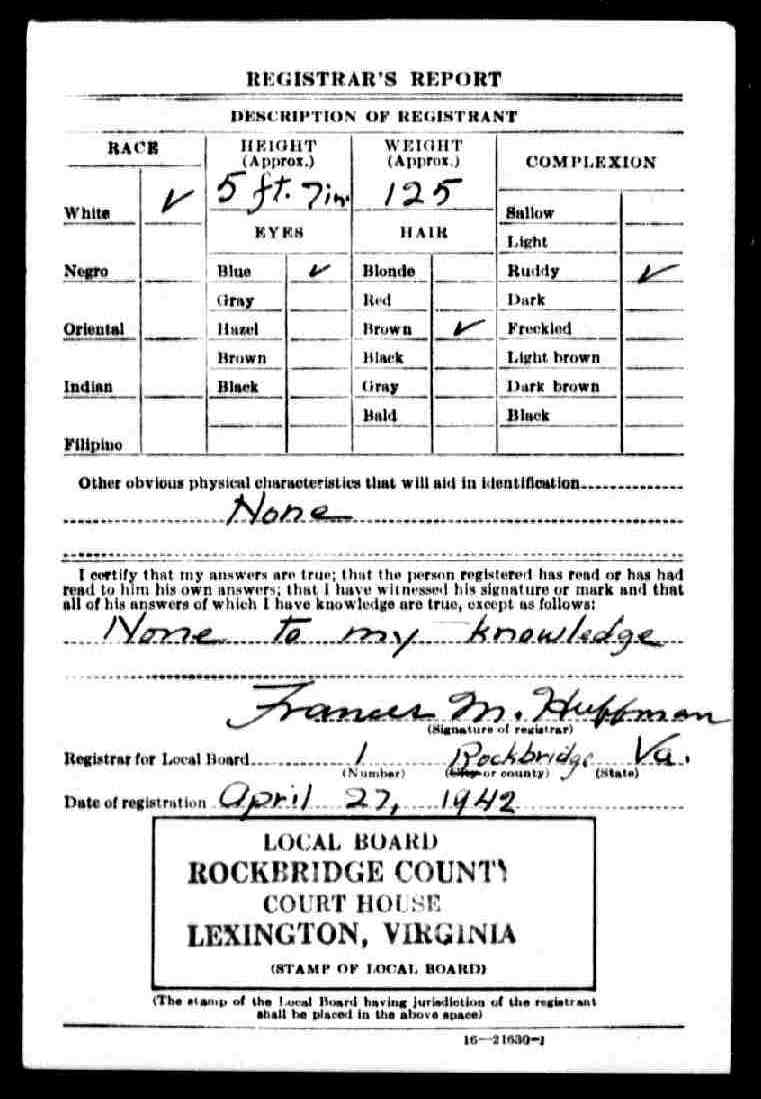 REGISTRAR'S REPORT
DESCRIPTION OF REGISTRANT
RACE
HEIGHT (Approx.)
WEIGHT (Approx.)
COMPLEXION
5 ft. 7 in.
125
White ✓
Sallow
EYES
HAIR
Light
Negro
Blue ✓
Blonde
Ruddy ✓
Gray
Red
Dark
Oriental
Hazel
Brown ✓
Freckled
Brown
Black
Light brown
Indian
Black
Gray
Dark brown
Bald
Black
Filipino
Other obvious physical characteristics that will aid in identification
None
I certify that my answers are true; that the person registered has read or has had
read to him his own answers; that I have witnessed his signature or mark and that
all of his answers of which I have knowledge are true, except as follows:
None to my knowledge
Frances M. Huffman
(Signature of registrar)
Registrar for Local Board 1 Rockbridge Va.
(Number) (City or county) (State)
Date of registration April 27, 1942
LOCAL BOARD
ROCKBRIDGE COUNTY
COURT HOUSE
LEXINGTON, VIRGINIA
(STAMP OF LOCAL BOARD)
(The stamp of the Local Board having jurisdiction of the registrant
shall be placed in the above space)
16—21630-1